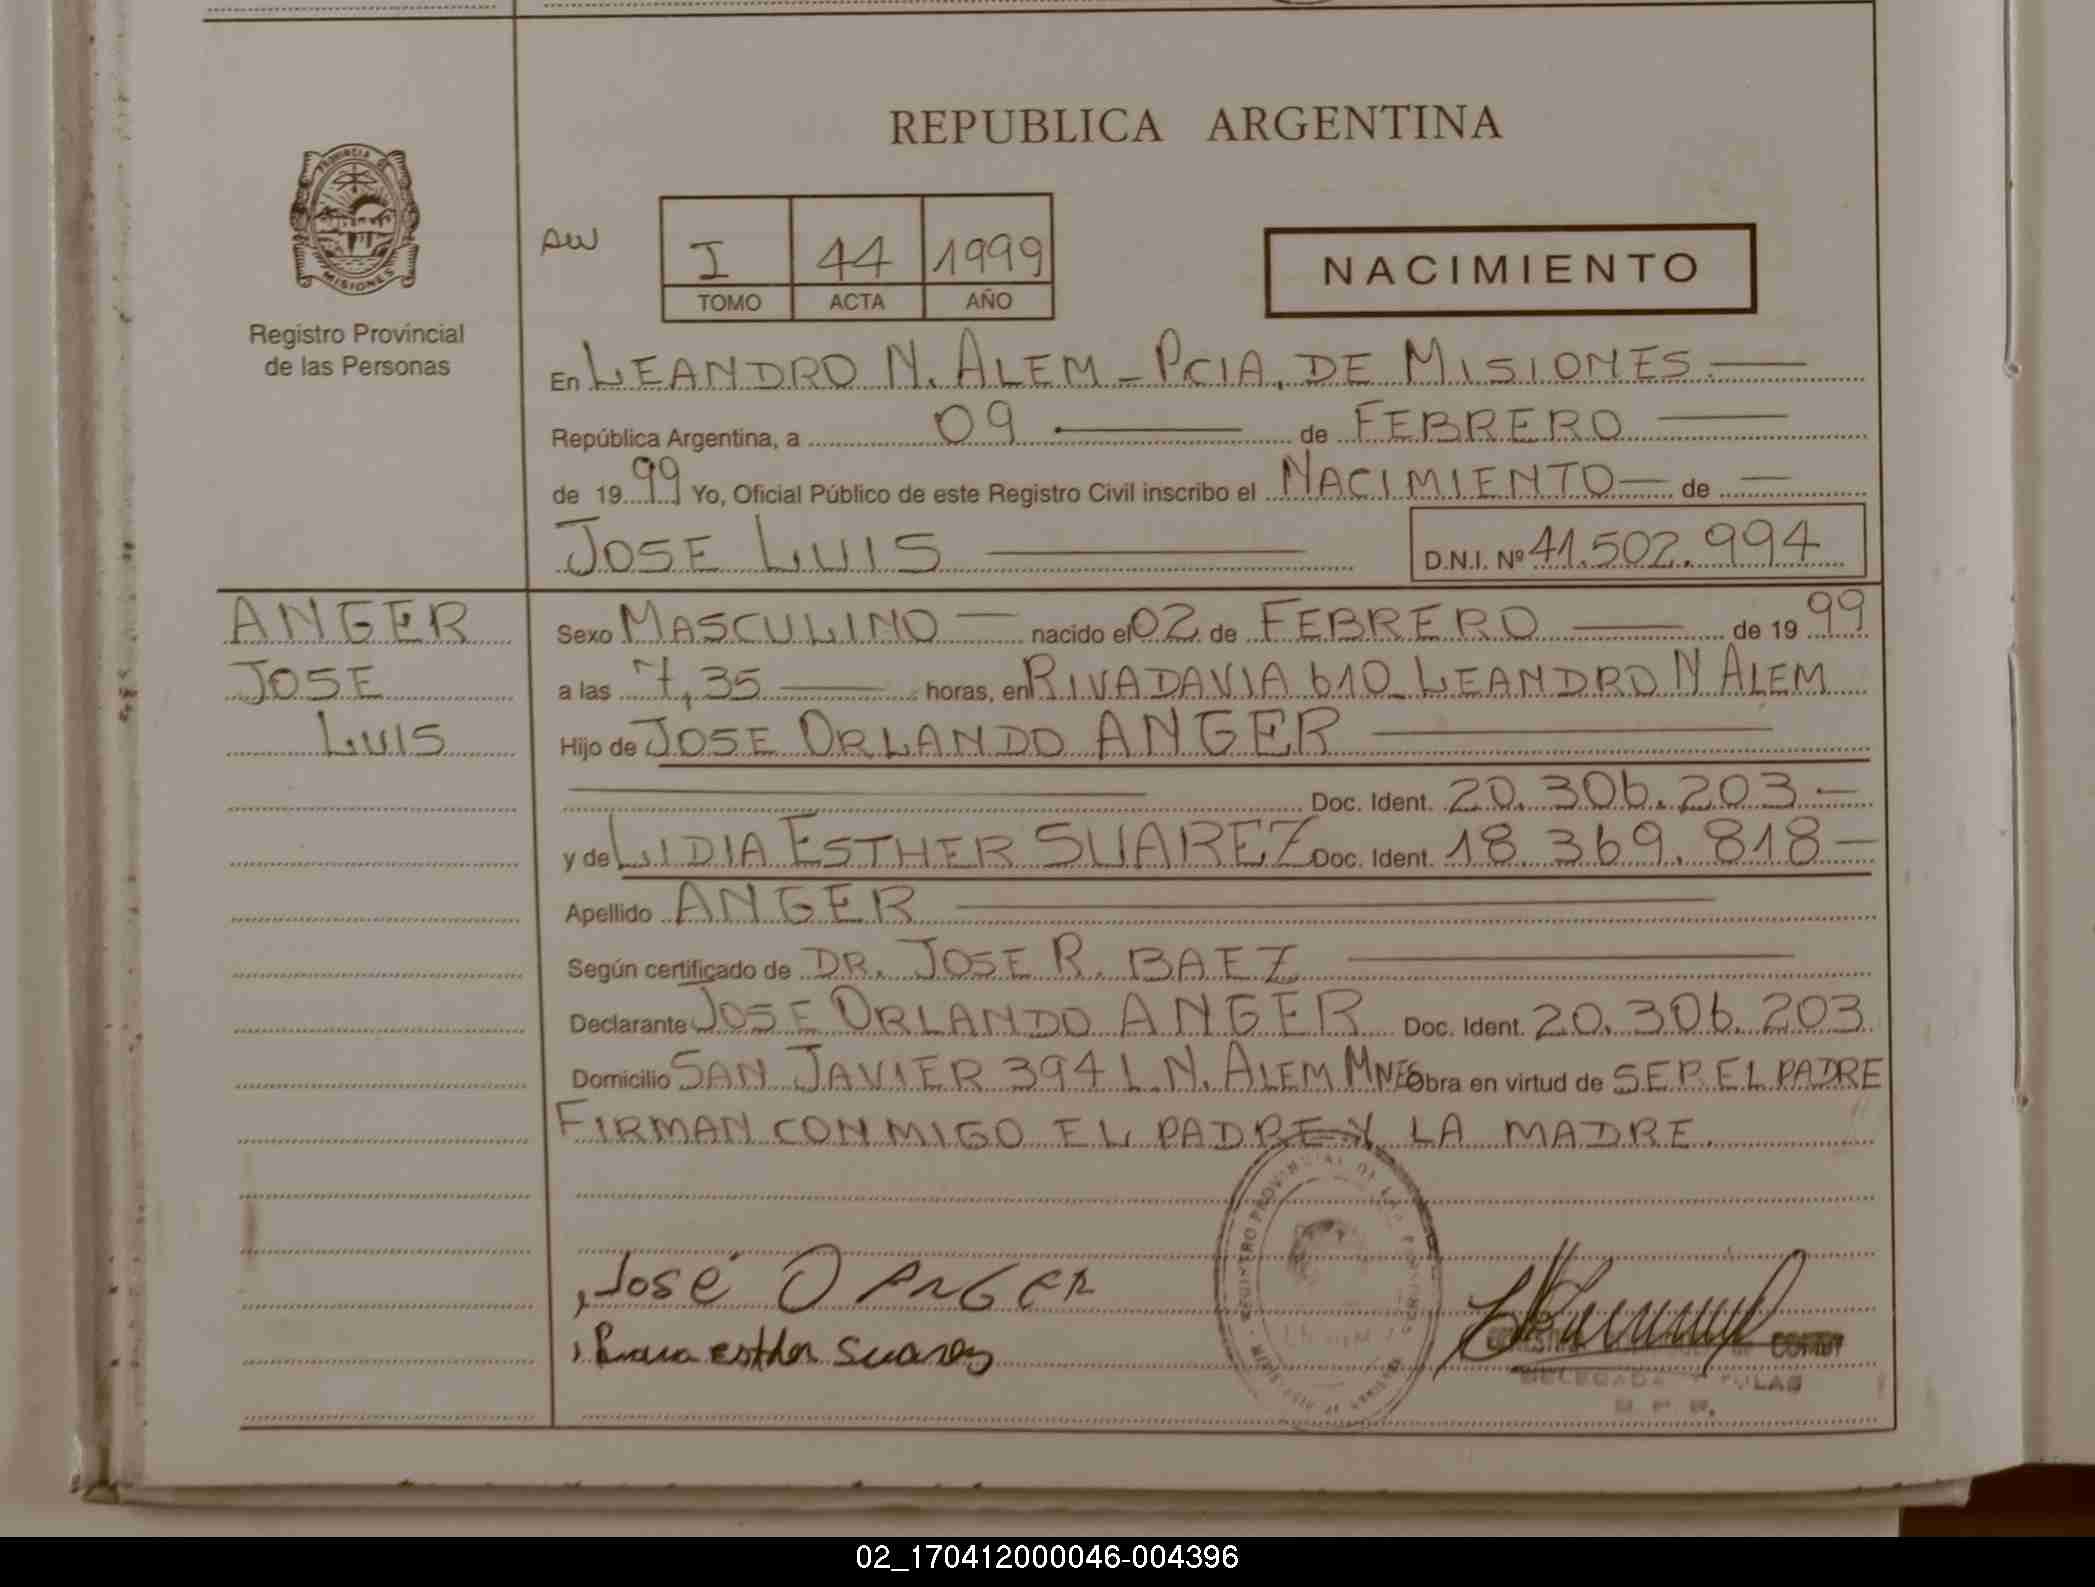 REPUBLICA ARGENTINA
PROVINCIA DE
MISIONES
Registro Provincial
de las Personas
AW
I 44 1999
TOMO ACTA AÑO
NACIMIENTO
En LEANDRO N. ALEM - PCIA. DE MISIONES. —
República Argentina, a 09 — de FEBRERO —
de 19 99 Yo, Oficial Público de este Registro Civil inscribo el NACIMIENTO — de —
JOSE LUIS — D.N.I. Nº 41.502.994
ANGER
JOSE
LUIS
Sexo MASCULINO — nacido el 02 de FEBRERO — de 19 99
a las 7,35 — horas, en RIVADAVIA 610 LEANDRO N ALEM
Hijo de JOSE ORLANDO ANGER —
— Doc. Ident. 20.306.203.—
y de LIDIA ESTHER SUAREZ Doc. Ident. 18.369.818—
Apellido ANGER —
Según certificado de DR. JOSE R. BAEZ —
Declarante JOSE ORLANDO ANGER Doc. Ident. 20.306.203
Domicilio SAN JAVIER 394 L.N. ALEM MNES Obra en virtud de SER EL PADRE
FIRMAN CONMIGO EL PADRE Y LA MADRE.
José O ANGER
esther Suarez
DELEGADA
02_170412000046-004396